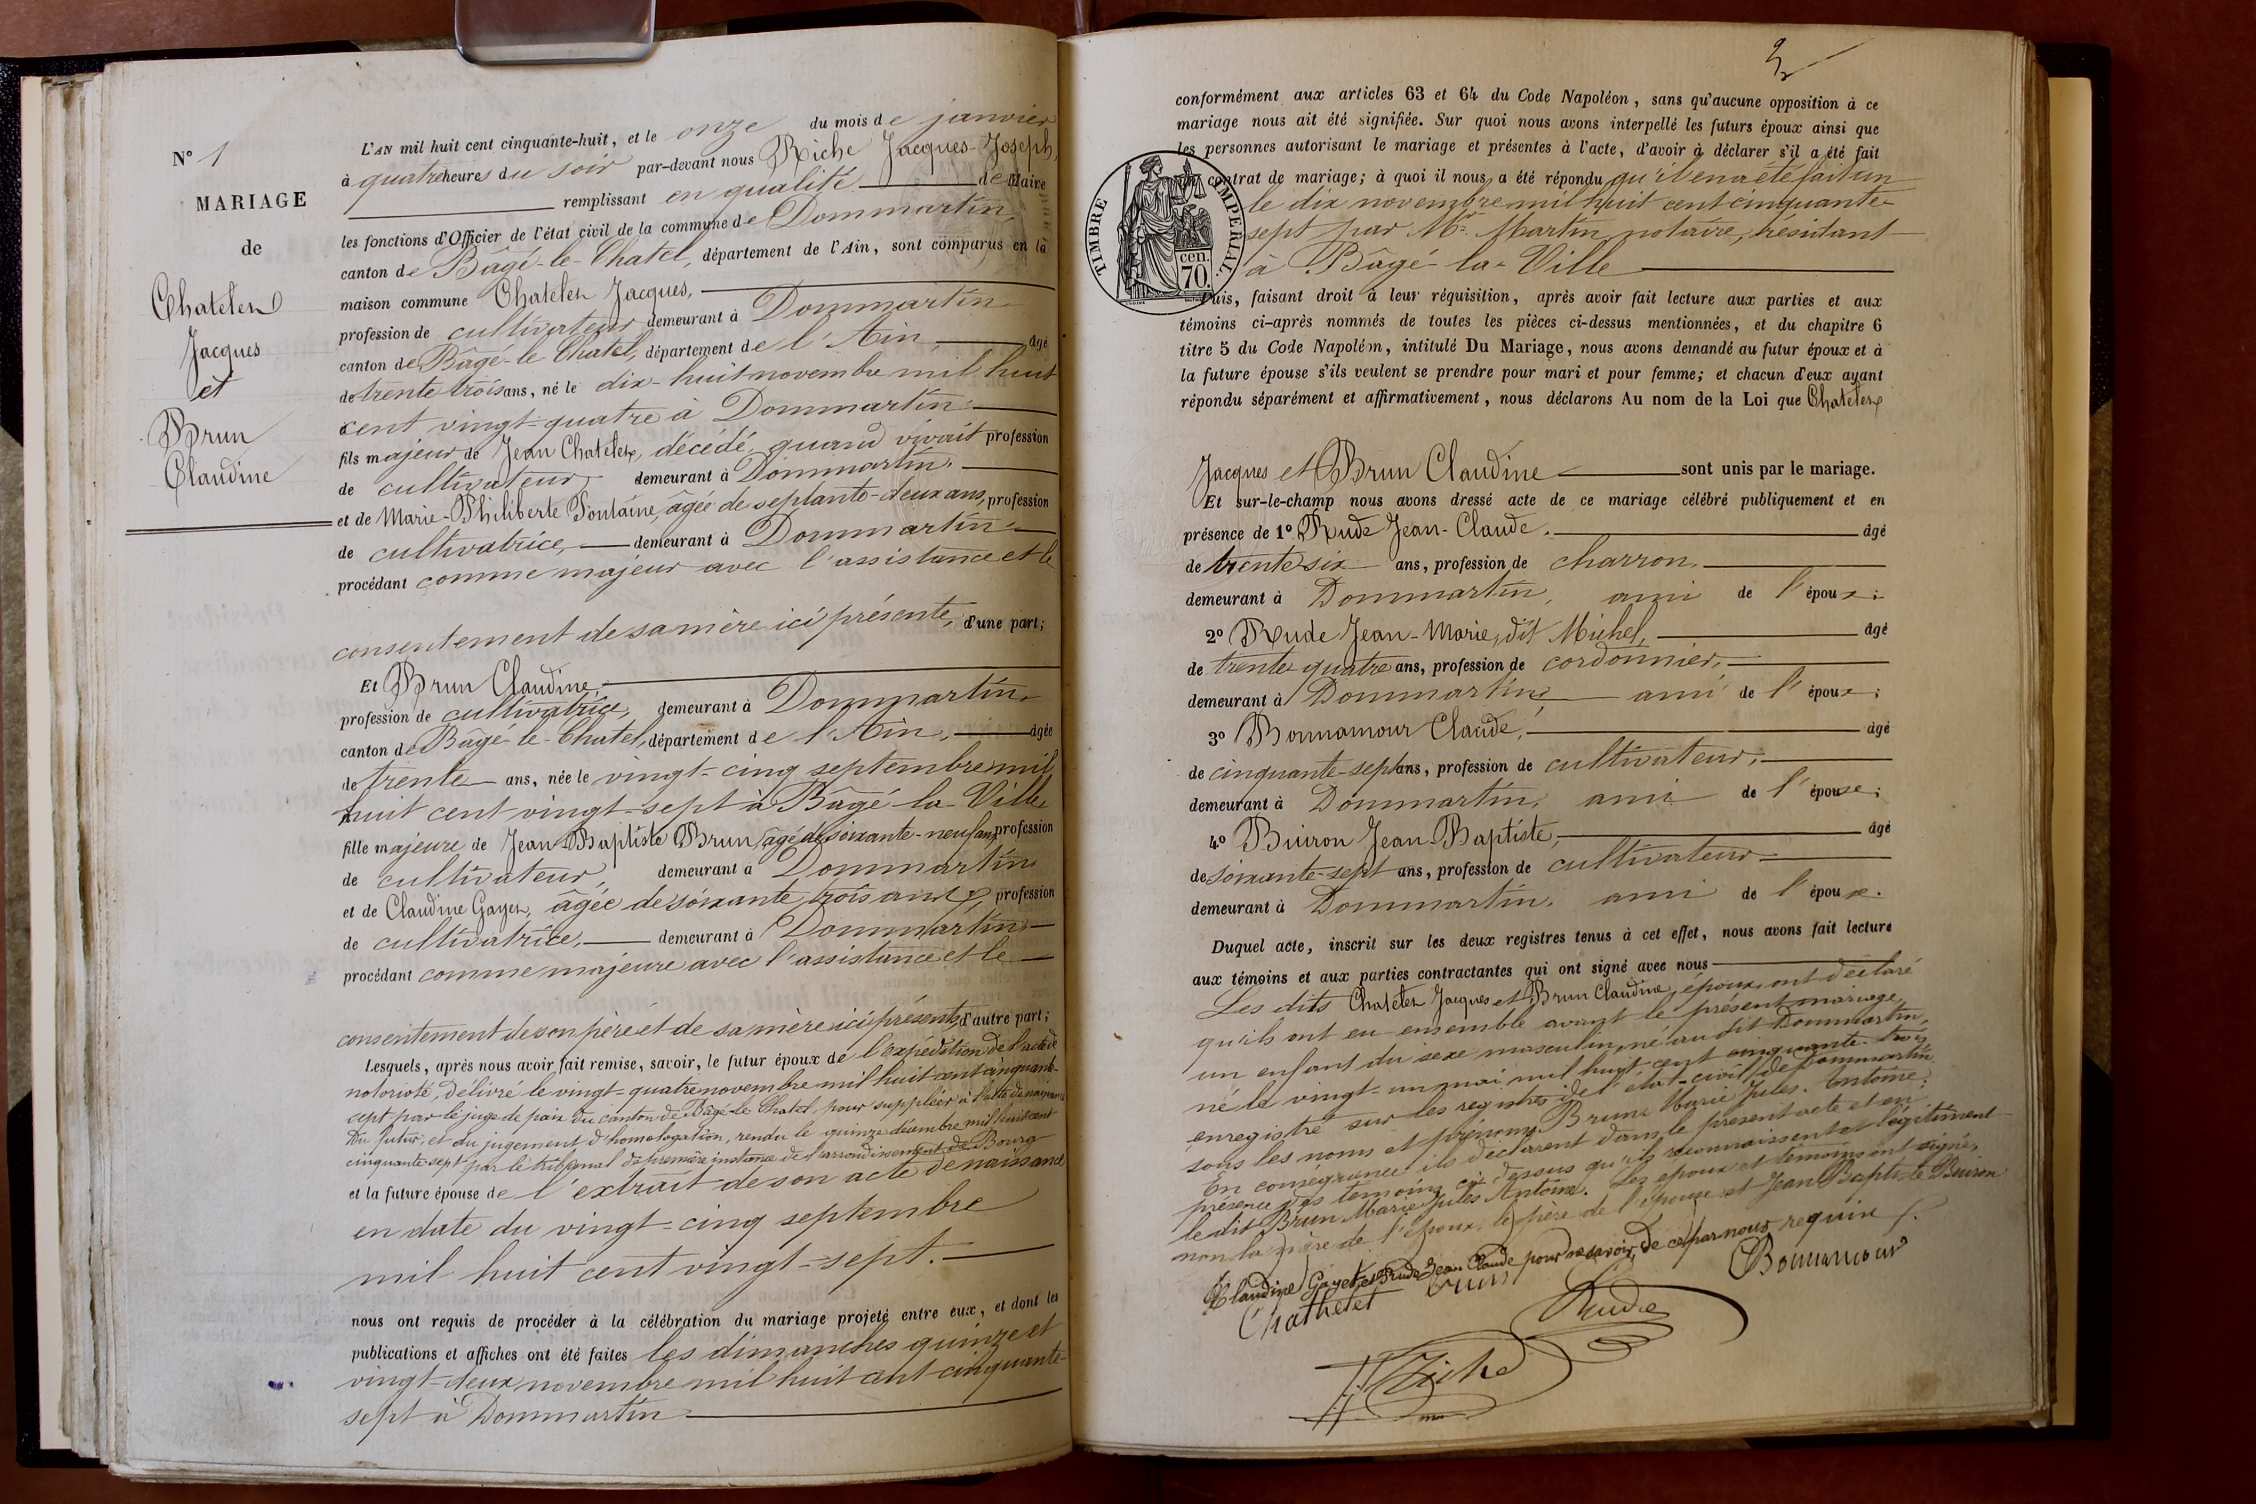 N° 1
MARIAGE
de
Chatelet
Jacques
et
Brun
Claudine
L'AN mil huit cent cinquante-huit, et le onze du mois de janvier
à quatre heures du soir par-devant nous Riche Jacques-Joseph,
remplissant en qualité de Maire
les fonctions d'Officier de l'état civil de la commune de Dommartin,
canton de Bâgé-le-Chatel, département de l'Ain, sont comparus en la
maison commune Chatelet Jacques,
profession de cultivateur demeurant à Dommartin
canton de Bâgé-le Chatel, département de l'Ain, âgé
de trente trois ans, né le dix-huit novembre mil huit
cent vingt-quatre à Dommartin
fils majeur de Jean Chatelet, décédé, quand vivait profession
de cultivateur, demeurant à Dommartin,
et de Marie-Philiberte Fontaine, âgée de septante-deux ans, profession
de cultivatrice, demeurant à Dommartin
procédant comme majeur avec l'assistance et le
consentement de sa mère ici présente, d'une part;
Et Brun Claudine,
profession de cultivatrice, demeurant à Dommartin,
canton de Bâgé-le-Chatel, département de l'Ain, âgée
de trente ans, née le vingt-cinq septembre mil
huit cent vingt-sept à Bâgé-la-Ville
fille majeure de Jean-Baptiste Brun, âgé de soixante-neuf ans, profession
de cultivateur, demeurant à Dommartin
et de Claudine Gayet, âgée de soixante trois ans, profession
de cultivatrice, demeurant à Dommartin
procédant comme majeure avec l'assistance et le
consentement de son père et de sa mère ici présents, d'autre part;
Lesquels, après nous avoir fait remise, savoir, le futur époux de l'expédition de l'acte de
notoriété, délivré le vingt-quatre novembre mil huit cent cinquante-
sept par le juge de paix du canton de Bâgé-le Chatel, pour suppléer à l'acte de naissance
du futur, et du jugement d'homologation, rendu le quinze décembre mil huit cent
cinquante sept par le tribunal de première instance de l'arrondissement de Bourg
et la future épouse de l'extrait de son acte de naissance
en date du vingt-cinq septembre
mil huit cent vingt-sept.
nous ont requis de procéder à la célébration du mariage projeté entre eux, et dont les
publications et affiches ont été faites les dimanches quinze et
vingt-deux novembre mil huit cent cinquante-
sept à Dommartin
2
conformément aux articles 63 et 64 du Code Napoléon, sans qu'aucune opposition à ce
mariage nous ait été signifiée. Sur quoi nous avons interpellé les futurs époux ainsi que
les personnes autorisant le mariage et présentes à l'acte, d'avoir à déclarer s'il a été fait
contrat de mariage; à quoi il nous a été répondu qu'il en a été fait un
le dix novembre mil huit cent cinquante-
sept par Mr. Martin notaire, résidant
à Bâgé-la-Ville
TIMBRE IMPERIAL.
cen.
70.
Puis, faisant droit à leur réquisition, après avoir fait lecture aux parties et aux
témoins ci-après nommés de toutes les pièces ci-dessus mentionnées, et du chapitre 6
titre 5 du Code Napoléon, intitulé Du Mariage, nous avons demandé au futur époux et à
la future épouse s'ils veulent se prendre pour mari et pour femme; et chacun d'eux ayant
répondu séparément et affirmativement, nous déclarons Au nom de la Loi que Chatelet
Jacques et Brun Claudine sont unis par le mariage.
Et sur-le-champ nous avons dressé acte de ce mariage célébré publiquement et en
présence de 1° Rude Jean-Claude. âgé
de trente six ans, profession de charron
demeurant à Dommartin, ami de l'époux;
2° Rude Jean-Marie, dit Michel, âgé
de trente quatre ans, profession de cordonnier,
demeurant à Dommartin, ami de l'époux;
3° Bonnamour Claude, âgé
de cinquante-sept ans, profession de cultivateur,
demeurant à Dommartin, ami de l'épouse;
4° Buiron Jean-Baptiste, âgé
de soixante-sept ans, profession de cultivateur
demeurant à Dommartin, ami de l'époux.
Duquel acte, inscrit sur les deux registres tenus à cet effet, nous avons fait lecture
aux témoins et aux parties contractantes qui ont signé avec nous
Les dits Chatelet Jacques et Brun Claudine, époux, ont déclaré
qu'ils ont eu ensemble avant le présent mariage,
un enfant du sexe masculin, né au dit Dommartin,
né le vingt-un mai mil huit cent cinquante-trois
enregistré sur les registres de l'état-civil de Dommartin
sous les noms et prénoms Brun Marie Jules Antoine;
En conséquence ils déclarent dans le présent acte et en
présence des témoins ci-dessus qu'ils reconnaissent et légitiment
le dit Brun Marie Jules Antoine. Les époux et témoins ont signé,
non la mère de l'époux, le père de l'épouse et Jean Baptiste Buiron
Claudine Gayet et Rude Jean Claude pour ne savoir, de ce par nous requis
Chathelet Brun Bonnamour
Rude
Riche